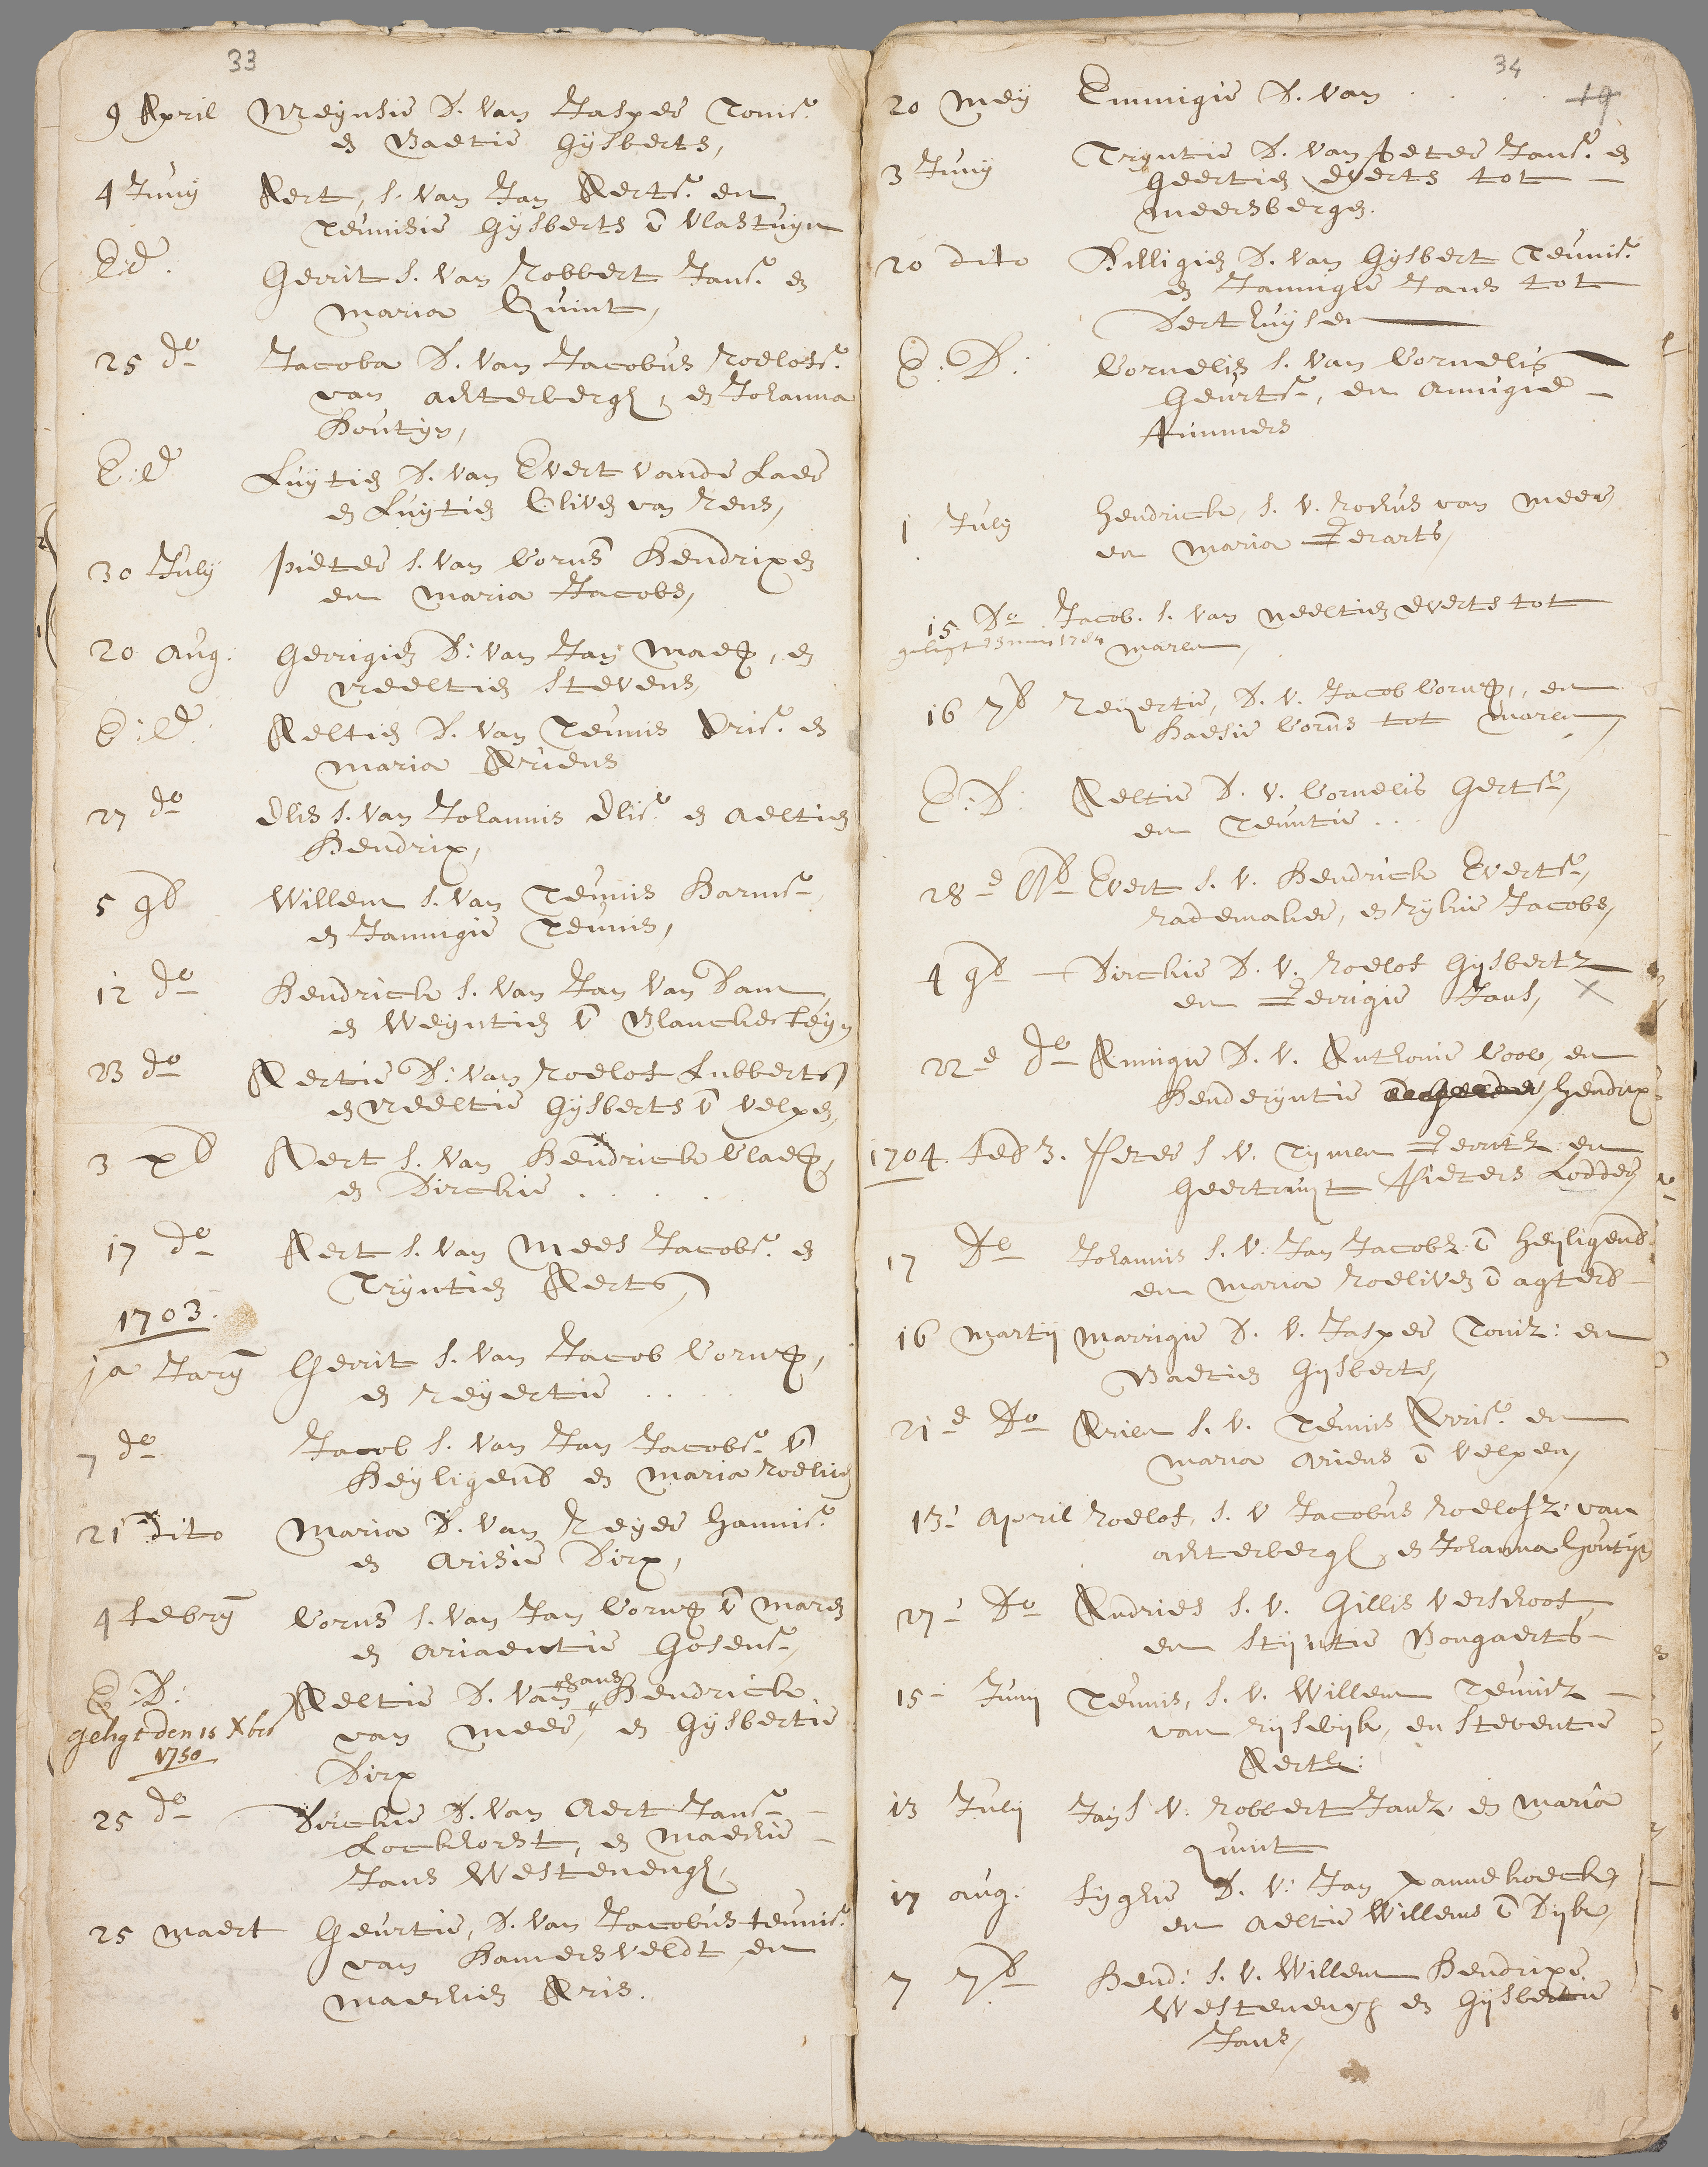 33
9 April Weynsie D. van Jasper Tonis.
en Baetie Gijsberts,
4 Juny Aert, s. van Jan Aerts. en
Teunisie Gijsberts v Vlastuyn
E:d. Gerrit s. van Robbert Jans. en
Maria Quint,
25 do Jacoba D. van Jacobus Roelofs.
van achterbergh, en Johanna
Houtyn,
E:d Luytie D. van Evert vande Laer
en Luytie Elives van Rens,
30 July pieter s. van Corns Hendrixen
en Maria Jacobs,
20 Aug: Gerrigie D: van Jan Maesz, en
Neeltie Stevens,
E:d. Aeltie D. van Teunis Aris. en
Maria Ariens
27 do Elis s. van Johannis Elis. en Aeltie
Hendrix,
5 9b Willem s. van Teunis Harms.
en Jannigie Teunis,
12 do Hendrick s. van Jan van Dam
en Weyntie v Blanckesteyn
23 do Aertie D: van Roelof Lubberts
en Neeltie Gijsberts v velpen,
3 xb Aert s. van Hendrick Claesz,
en Dirckie . . . .
17 do Aert s. van Mees Jacobs. en
Tryntie Aerts,
1703.
ja Jary Gerrit s. van Jacob Cornsz,
en Reyertie . . . .
7 do Jacob s. van Jan Jacobs. v
Heyligenb en Maria Roeliv
21 dito Maria D. van Reyer Hannis.
en Arisie Dirx,
4 febry Corns s. van Jan Cornsz v Maren
en Ariaentie Gosens.,
E:D: Aeltie D. van Hans Hendrick
geligt den 15 Xber van Meer, en Gysbertie
1750 Dirx
25 do Dirckie D. van Aert Jans.
Lockhorst, en Maechie
Jans Westenengh,
25 maert Geurtie, D. van Jacobus teunis.
van Hamersveldt en
Maechie Aris.
34
19
20 Mey Emmigie D. van . . . .
3 Juny Tryntie D. van Peter Jans. en
Geertie Everts tot
Meersbergen.
20 dito Hilligie D. van Gysbert Teunis.
en Jannigie Jans tot
Derthuysen
E:D: Cornelis s. van Cornelis
Geurts., en Annigie
Pimmers
1 July Hendrick, s. v. Rochus van Meer
en Maria Gerarts,
15 Do Jacob. s. van Neeltie Everts tot
geligt 1784 Maren,
16 7b Reyertie, D. v. Jacob Cornsz, en
Haesie Corns tot Maren,
E:D: Aeltie D. v. Cornelis Gerts.,
en Teuntie ...
28e 8b Evert s. v. Hendrick Everts.,
rademaker, en Rykie Jacobs,
4 9b Dirckie D. v. Roelof Gijsbertz
en Gerrigie Jans, X
22e do Annigie D. v. Anthonie Cool, en
Henderyntie Hendrix
1704. feb 3. Peter s. v. Tymen Gerritz en
Geertruyt Pieters Lodder,
17 do Johannis s. v. Jan Jacobz: v Heyligenb.
en Maria Roeliven v agterb
16 Martij Marrigie D. v. Jasper Toniz: en
Baetie Gijsberts,
21e Do Arien s. v. Teunis Arris. en
Maria Ariens v velpen,
13: April Roelof, s. v Jacobus Roelofz: van
achterbergh en Johanna Houtyn
27: Do Andries s. v. Gillis Verschoof
en Styntie Bongaerts
15 Junij Teunis, s. v. Willem Teunisz
van Rijswyk, en Steventie
Aertz:
13 Julij Jan s. v. Robbert Janz. en Maria
Quint
17 aug: Sygie D. v: Jan pannekoeck,
en Aeltie Willems v Dijk,
7 7b Hend: s. v. Willem Hendrixe
Westenengh en Gijsbertie
Jans,
19